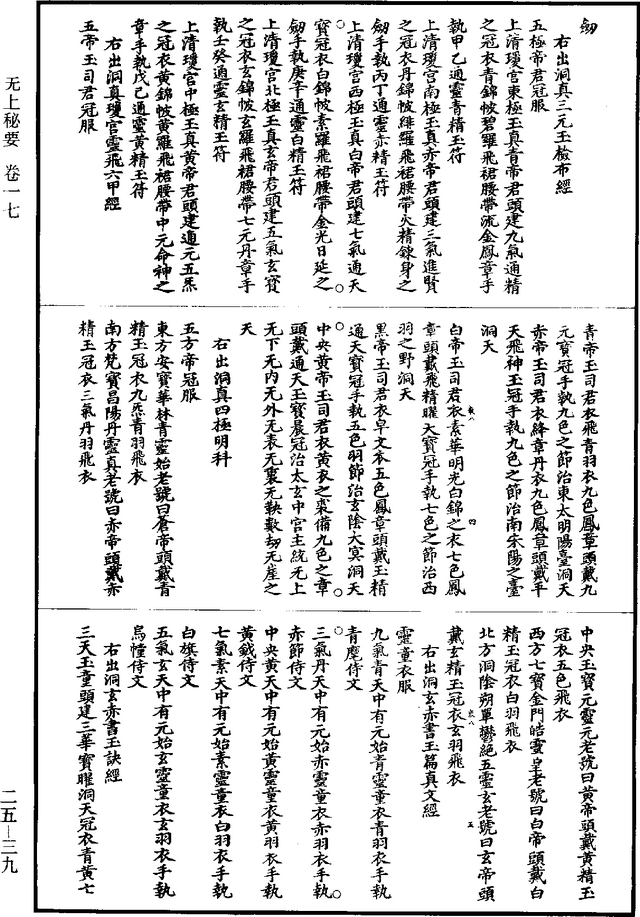 无上秘要 卷一七
二五—三九
劒
右出洞真三元玉檢布經
五極帝君冠服
上清瓊宮東極玉真青帝君頭建九氣通精
之冠衣青錦帔碧羅飛裙腰帶流金鳳章手
執甲乙通靈青精玉符
上清瓊宮南極玉真赤帝君頭建三氣進賢
之冠衣丹錦帔緋羅飛裙腰帶火精鍊身之
劒手執丙丁通靈赤精玉符
上清瓊宮西極玉真白帝君頭建七氣通天
寶冠衣白錦帔素羅飛裙腰帶金光日延之
劒手執庚辛通靈白精玉符
上清瓊宮北極玉真玄帝君頭建五氣玄寶
之冠衣玄錦帔玄羅飛裙腰帶七元丹章手
執壬癸通靈玄精玉符
上清瓊宮中極玉真黃帝君頭建通元五炁
之冠衣黃錦帔黃羅飛裙腰帶中元命神之
章手執戊己通靈黃精玉符
右出洞真瓊宮靈飛六甲經
五帝玉司君冠服
青帝玉司君衣飛青羽衣九色鳳章頭戴九
元寶冠手執九色之節治東太明陽臺洞天
赤帝玉司君衣絳章丹衣九色鳳章頭戴平
天飛神玉冠手執九色之節治南宋陽之臺
洞天
白帝玉司君衣素華明光白錦之衣七色鳳
章頭戴飛精曜天寶冠手執七色之節治西
羽之野洞天
黑帝玉司君衣皁文衣五色鳳章頭戴玉精
通天寶冠手執五色羽節治玄陰大冥洞天
中央黃帝玉司君衣黃衣之裘備九色之章
頭戴通天玉寶晨冠治太玄中宮主統无上
无下无内无外无表无裏无鞅數劫无崖之
天
右出洞真四極明科
五方帝冠服
東方安寶華林青靈始老號曰蒼帝頭戴青
精玉冠衣九炁青羽飛衣
南方梵寶昌陽丹靈真老號曰赤帝頭戴赤
精玉冠衣三氣丹羽飛衣
中央玉寶元靈元老號曰黃帝頭戴黃精玉
冠衣五色飛衣
西方七寶金門皓靈皇老號曰白帝頭戴白
精玉冠衣白羽飛衣
北方洞陰朔單鬱絕五靈玄老號曰玄帝頭
戴玄精玉冠衣玄羽飛衣
右出洞玄赤書玉篇真文經
靈童衣服
九氣青天中有元始青靈童衣青羽衣手執
青麾侍文
三氣丹天中有元始赤靈童衣赤羽衣手執
赤節侍文
中央黃天中有元始黃靈童衣黃羽衣手執
黃鉞侍文
七氣素天中有元始素靈童衣白羽衣手執
白旗侍文
五氣玄天中有元始玄靈童衣玄羽衣手執
烏幢侍文
右出洞玄赤書玉訣經
三天玉童頭建三華寶曜洞天冠衣青黃七